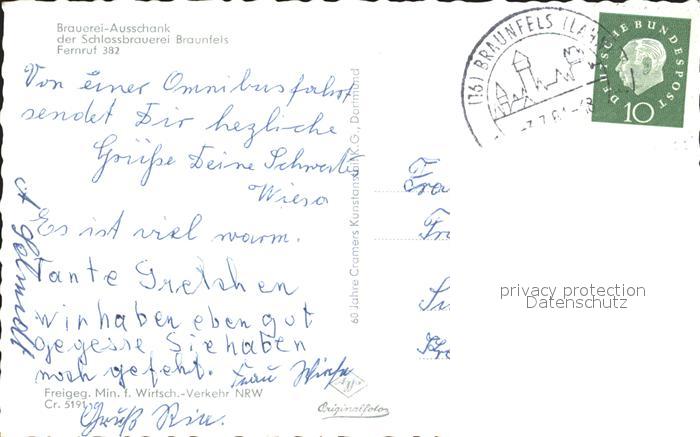 Brauerei-Ausschank
der Schlossbrauerei Braunfels
Fernruf 382
Von einer Omnibusfahrt
sendet Dir hezliche
Grüße Deine Schwester
Es ist viel warm.
Tante Gretchen
wir haben eben gut
gegesse Sie haben
noch gefehlt. Frau
Gruß
Freigeg. Min. f. Wirtsch.-Verkehr NRW
Cr. 5191
Originalfoto
60 Jahre Cramers Kunstanstalt K.G., Dortmund
(16) BRAUNFELS (LAHN)
DEUTSCHE BUNDESPOST
10
privacy protection
Datenschutz